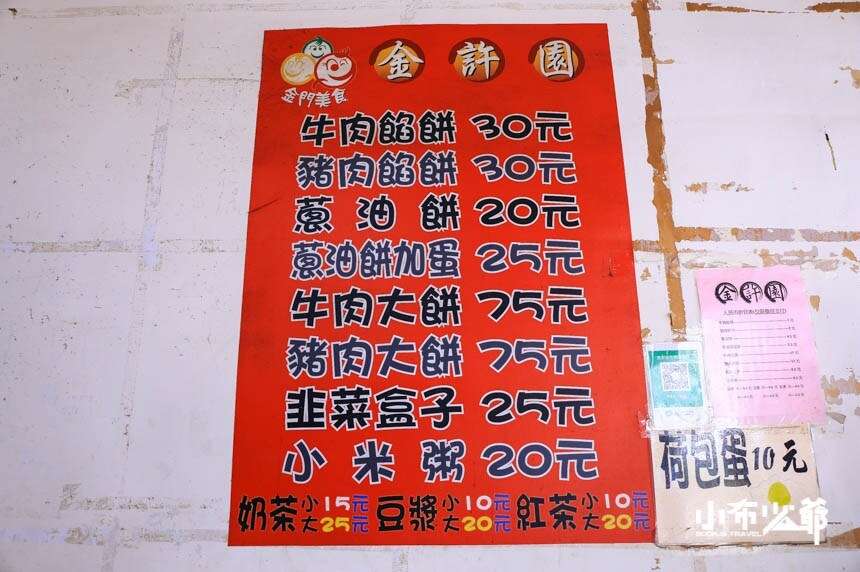 金許園
金門美食
牛肉餡餅 30元
豬肉餡餅 30元
蔥油餅 20元
蔥油餅加蛋 25元
牛肉大餅 75元
豬肉大餅 75元
韭菜盒子 25元
小米粥 20元
奶茶 小15元 大25元 豆漿 小10元 大20元 紅茶 小10元 大20元
金許園
荷包蛋10元
小布少爺
BOOBU TRAVEL